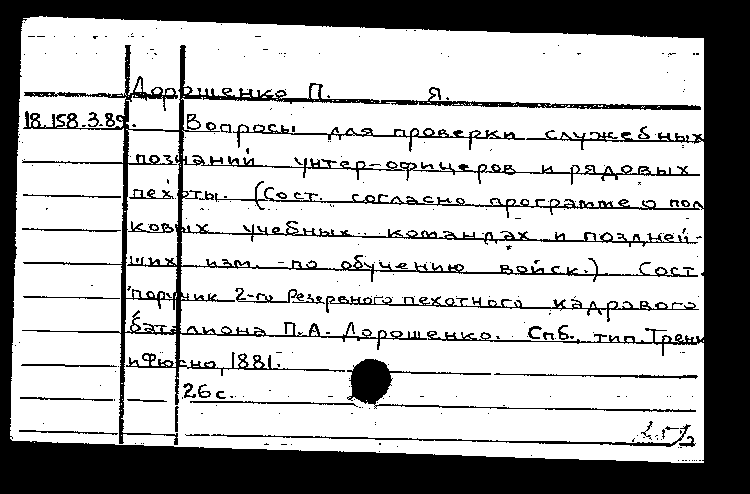 Дорошенко П. Я.
18.158.3.89. Вопросы для проверки служебных
познаний унтер-офицеров и рядовых
пехоты. (Сост. согласно программе о пол
ковых учебных командах и поздней-
ших изм. по обучению войск.). Сост.
поручик 2-го Резервного пехотного кадрового
баталиона П.А. Дорошенко. Спб., тип. Тренк
и Фюсно, 1881.
26 с.